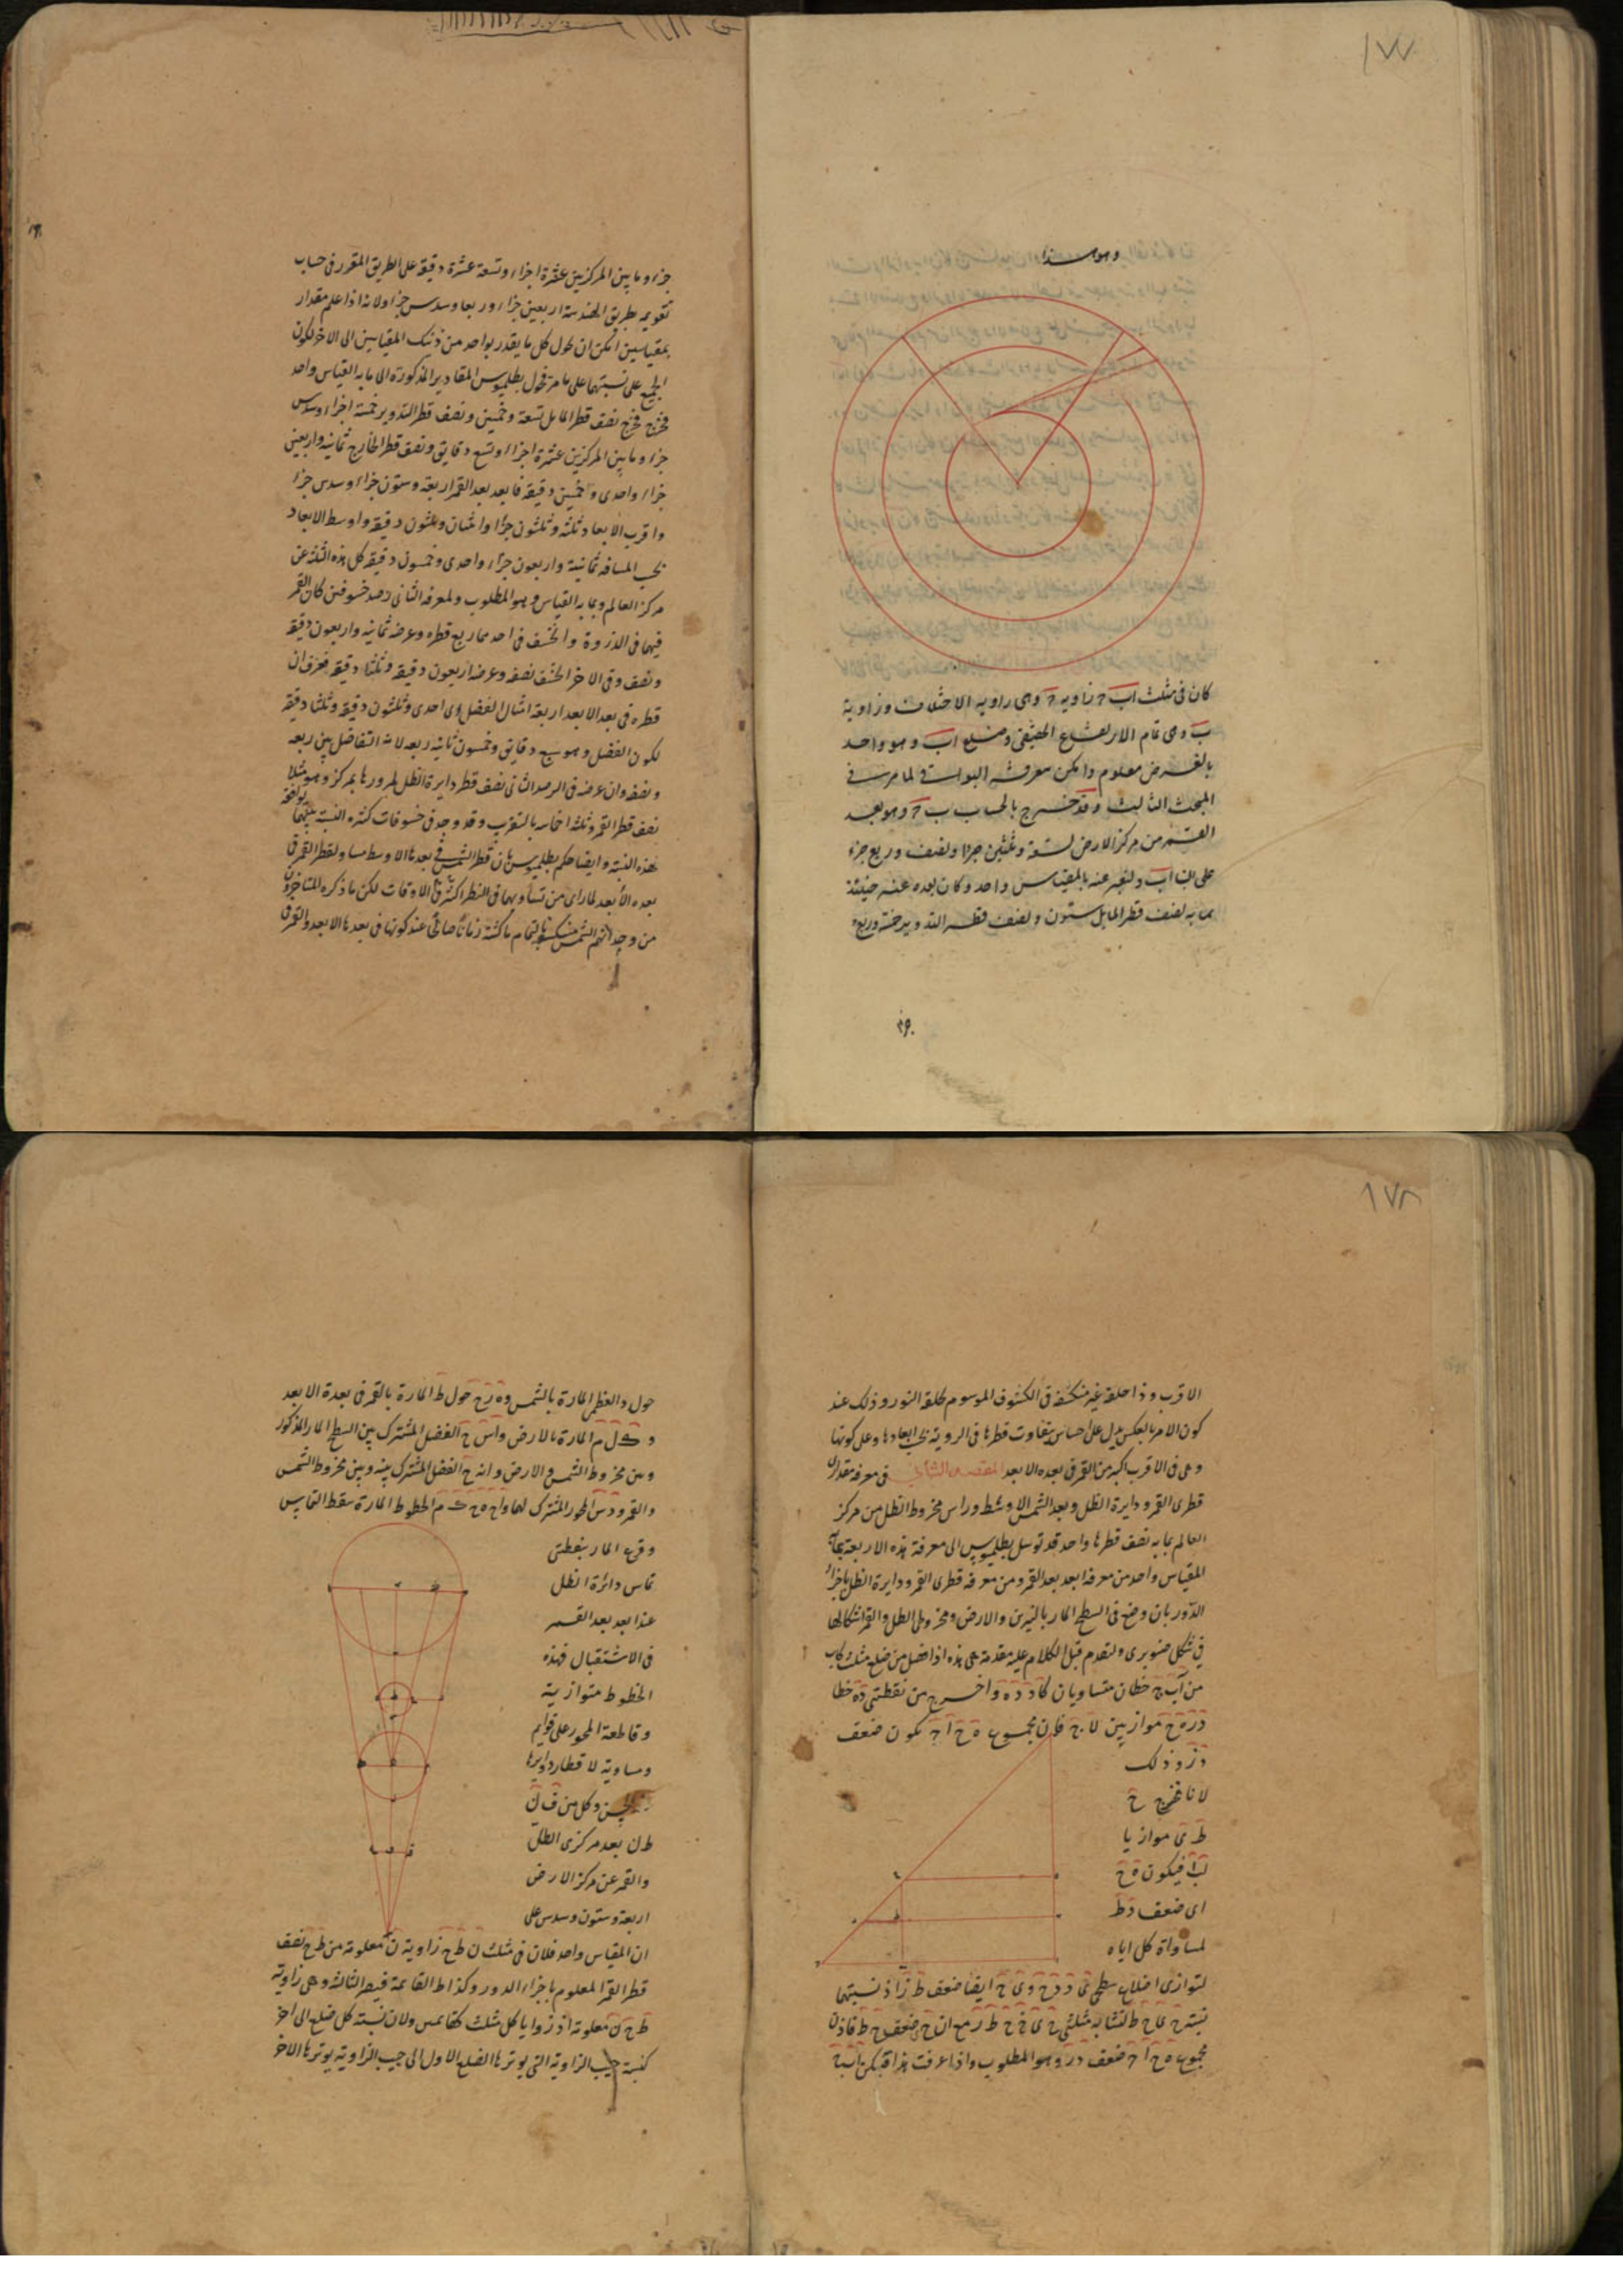 ١٧٧
وهو هذا
كان فى مثلث اب ح زاوية ح وهى زاوية الاختلاف وزاوية
ب وهى تمام الارتفاع الحقيقى وضلع اب وهو واحد
بالفرض معلوم وامكن معرفة البواقى لما مر فى
المبحث الثالث وقد خرج بالحساب ب ح وهو بعد
القمر من مركز الارض تسعة وثلثين جزءا ونصف وربع جزء
على ان اب ولنعبر عنه بالمقياس واحد وكان بعده عنه حينئذ
بما به نصف قطر المايل ستون ونصف قطر التدوير خمسة وربع
جزء وما بين المركزين عشرة اجزاء وتسعة عشرة دقيقة على الطريق المقرر فى حساب
تقويمه بطريق الهندسة اربعين جزاء وربعا وسدس جزء ولانه اذا علم مقدار
بمقياسين امكن ان يحول كل ما يقدر بواحد من ذينك المقياسين الى الاخر لكون
الجميع على نسبتهما على ما مر فحول بطلميوس المقادير المذكورة الى ما به القياس واحد
فخرج نصف قطر المايل تسعة وخمسين ونصف قطر التدوير خمسة اجزاء وسدس
جزء وما بين المركزين عشرة اجزاء وتسع دقايق ونصف قطر الخارج ثمانية واربعين
جزاء واحدى وخمسين دقيقة فابعد بعد القمر اربعة وستون جزاء وسدس جزء
واقرب الابعاد ثلثة وثلثون جزءا واثنان وثلثون دقيقة واوسط الابعاد
بحسب المسافة ثمانية واربعون جزاء واحدى وخمسون دقيقة كل هذه الثلثة عن
مركز العالم وبما به القياس وهو المطلوب ولمعرفة الثانى رصد خسوفين كان القمر
فيهما فى الذروة وانخسف فى احدهما ربع قطره وعرضه ثمانية واربعون دقيقة
ونصف وفى الاخر انخسف نصفه وعرضه اربعون دقيقة وثلثا دقيقة فعرف ان
قطره فى بعد الابعد اربعة امثال الفضل اى احدى وثلثون دقيقة وثلثا دقيقة
لكون الفضل وهو سبع دقايق وخمسون ثانية ربعه لانه التفاضل بين ربعه
ونصفه وان عرضه فى الرصد الثانى نصف قطر دايرة الظل لمرورها بمركزه وهو مثلا
نصف قطر القمر وثلثة اخماسه بالتقريب وقد وجد فى خسوفات كثيرة النسبة بينهما موافقة
لهذه النسبة وايضا حكم بطلميوس بان قطر الشمس فى بعدها الاوسط مساو لقطر القمر فى
بعده الابعد لما راى من تساويهما فى النظر اكثر الاوقات لكن ما ذكره المتاخرون
من وجدانهم الشمس منكسفة بالتمام ماكثة زمانا صالحا عند كونها فى بعدها الابعد والقمر فى
١٧٨
الاقرب وذا حلقة غير منكسفة فى الكسوف الموسوم بحلقة النور وذلك عند
كون الامر بالعكس يدل على احساس بتفاوت قطرها فى الروية بحسب ابعادها وعلى كونها
وهى فى الاقرب اكبر من القمر فى بعده الابعد المقصد الثانى فى معرفة مقدار
قطرى القمر ودايرة الظل وبعد الشمس الاوسط وراس مخروط الظل من مركز
العالم بما به نصف قطرها واحد قد توسل بطلميوس الى معرفة هذه الاربعة بما به
المقياس واحد من معرفة ابعد بعد القمر ومن معرفة قطرى القمر ودايرة الظل باجزاء
الدور بان وضع فى السطح المار بالنيرين والارض ومخروطى الظل والقمر اشكالها
فى شكل صنوبرى ولنقدم قبل الكلام عليه مقدمة هى هذه اذا فصل من ضلع مثلث كاب
من اب ج خطان متساويان كاد ده واخرج من نقطتى د ه خطا
در ه ح موازيين لاج فان مجموع ه ح اج يكون ضعف
در وذلك
لانا نخرج ح
ط ى موازيا
لاب فيكون ه ح
اى ضعف دط
لمساواة كل اياه
لتوازى اضلاع سطحى ى د ح وى ح ايضا ضعف ط ر اذ نسبتهما
نسبة ح ى ح ط لتشابه مثلثى ح ى ج ح ط ر مع ان ح ى ضعف ح ط فاذن
مجموع ه ح اج ضعف در وهو المطلوب واذا عرفت هذا فليكن اب ج
حول د العظمى المارة بالشمس وه ر ح حول ط المارة بالقمر فى بعده الابعد
وك ل م المارة بالارض واس ح الفصل المشترك بين السطح المار المذكور
وبين مخروط الشمس والارض وانه ح الفصل المشترك بينه وبين مخروط الشمس
والقمر ودس المحور المشترك لهما واح ه ح ك م الخطوط المارة بنقط التماس
وف المار بنقطتى
تماس دائرة الظل
عند ابعد بعد القمر
فى الاستقبال فهذه
الخطوط متوازية
وقاطعة المحور على قوايم
ومساوية لاقطار دوايرها
وكل من ف ن
ط ن بعد مركزى الظل
والقمر عن مركز الارض
اربعة وستون وسدس على
ان المقياس واحد فلان فى مثلث ن ط ح زاوية ن معلومة من ط ح نصف
قطر القمر المعلوم باجزاء الدور وكذا ط القائمة فيصير الثالثة وهى زاوية
ط ح ن معلومة اذ زوايا كل مثلث كقائمتين ولان نسبة كل ضلع الى اخر
كنسبة جيب الزاوية التى يوترها الضلع الاول الى جيب الزاوية يوترها الاخر